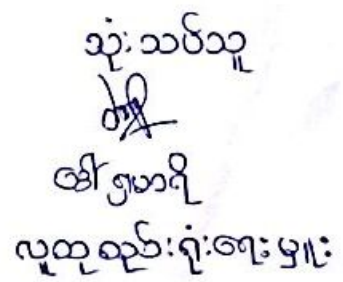 သုံးသပ်သူ
ဒေါ်
လူထုစည်းရုံးရေးမှူး